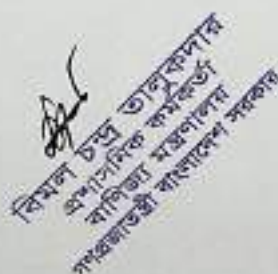 বিমল চন্দ্র তালুকদার
প্রশাসনিক কর্মকর্তা
বাণিজ্য মন্ত্রণালয়
গণপ্রজাতন্ত্রী বাংলাদেশ সরকার